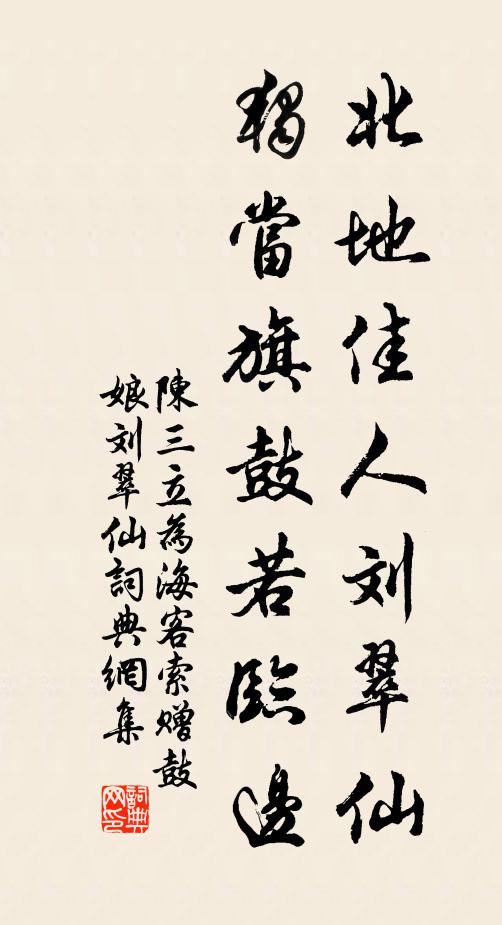 北地佳人刘翠仙
獨當旗鼓若臨邊
陳三立為海客索赠鼓
娘刘翠仙詞典網集
詞典网印